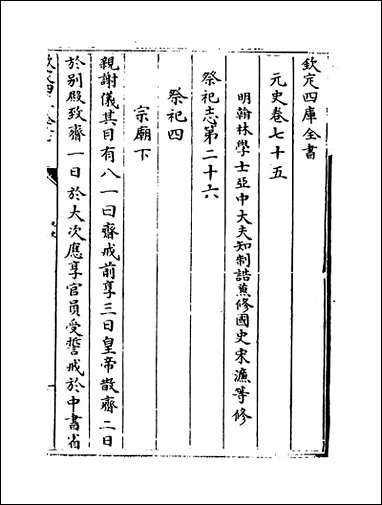 欽定四庫全書
元史卷七十五
明翰林學士亞中大夫知制誥兼修國史宋濂等修
祭祀志第二十六
祭祀四
宗廟下
親謝儀其目有八一曰齋戒前享三日皇帝散齋二日
於别殿致齋一日於大次應享官員受誓戒於中書省